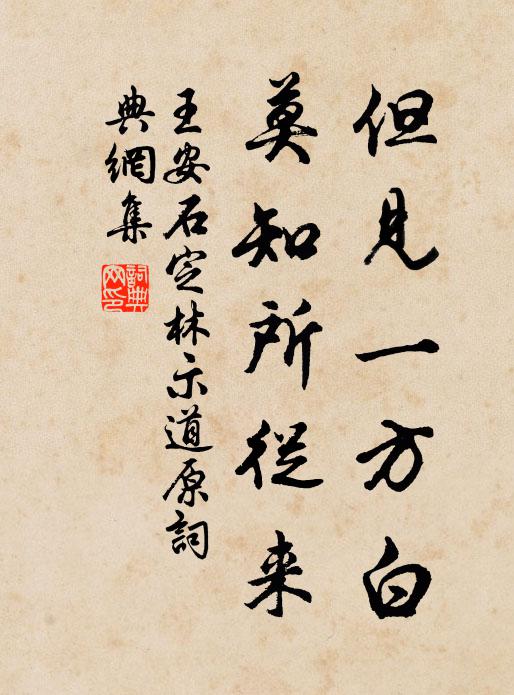 但見一方白
莫知所從来
王安石定林示道原詞
典網集
詞典
网印